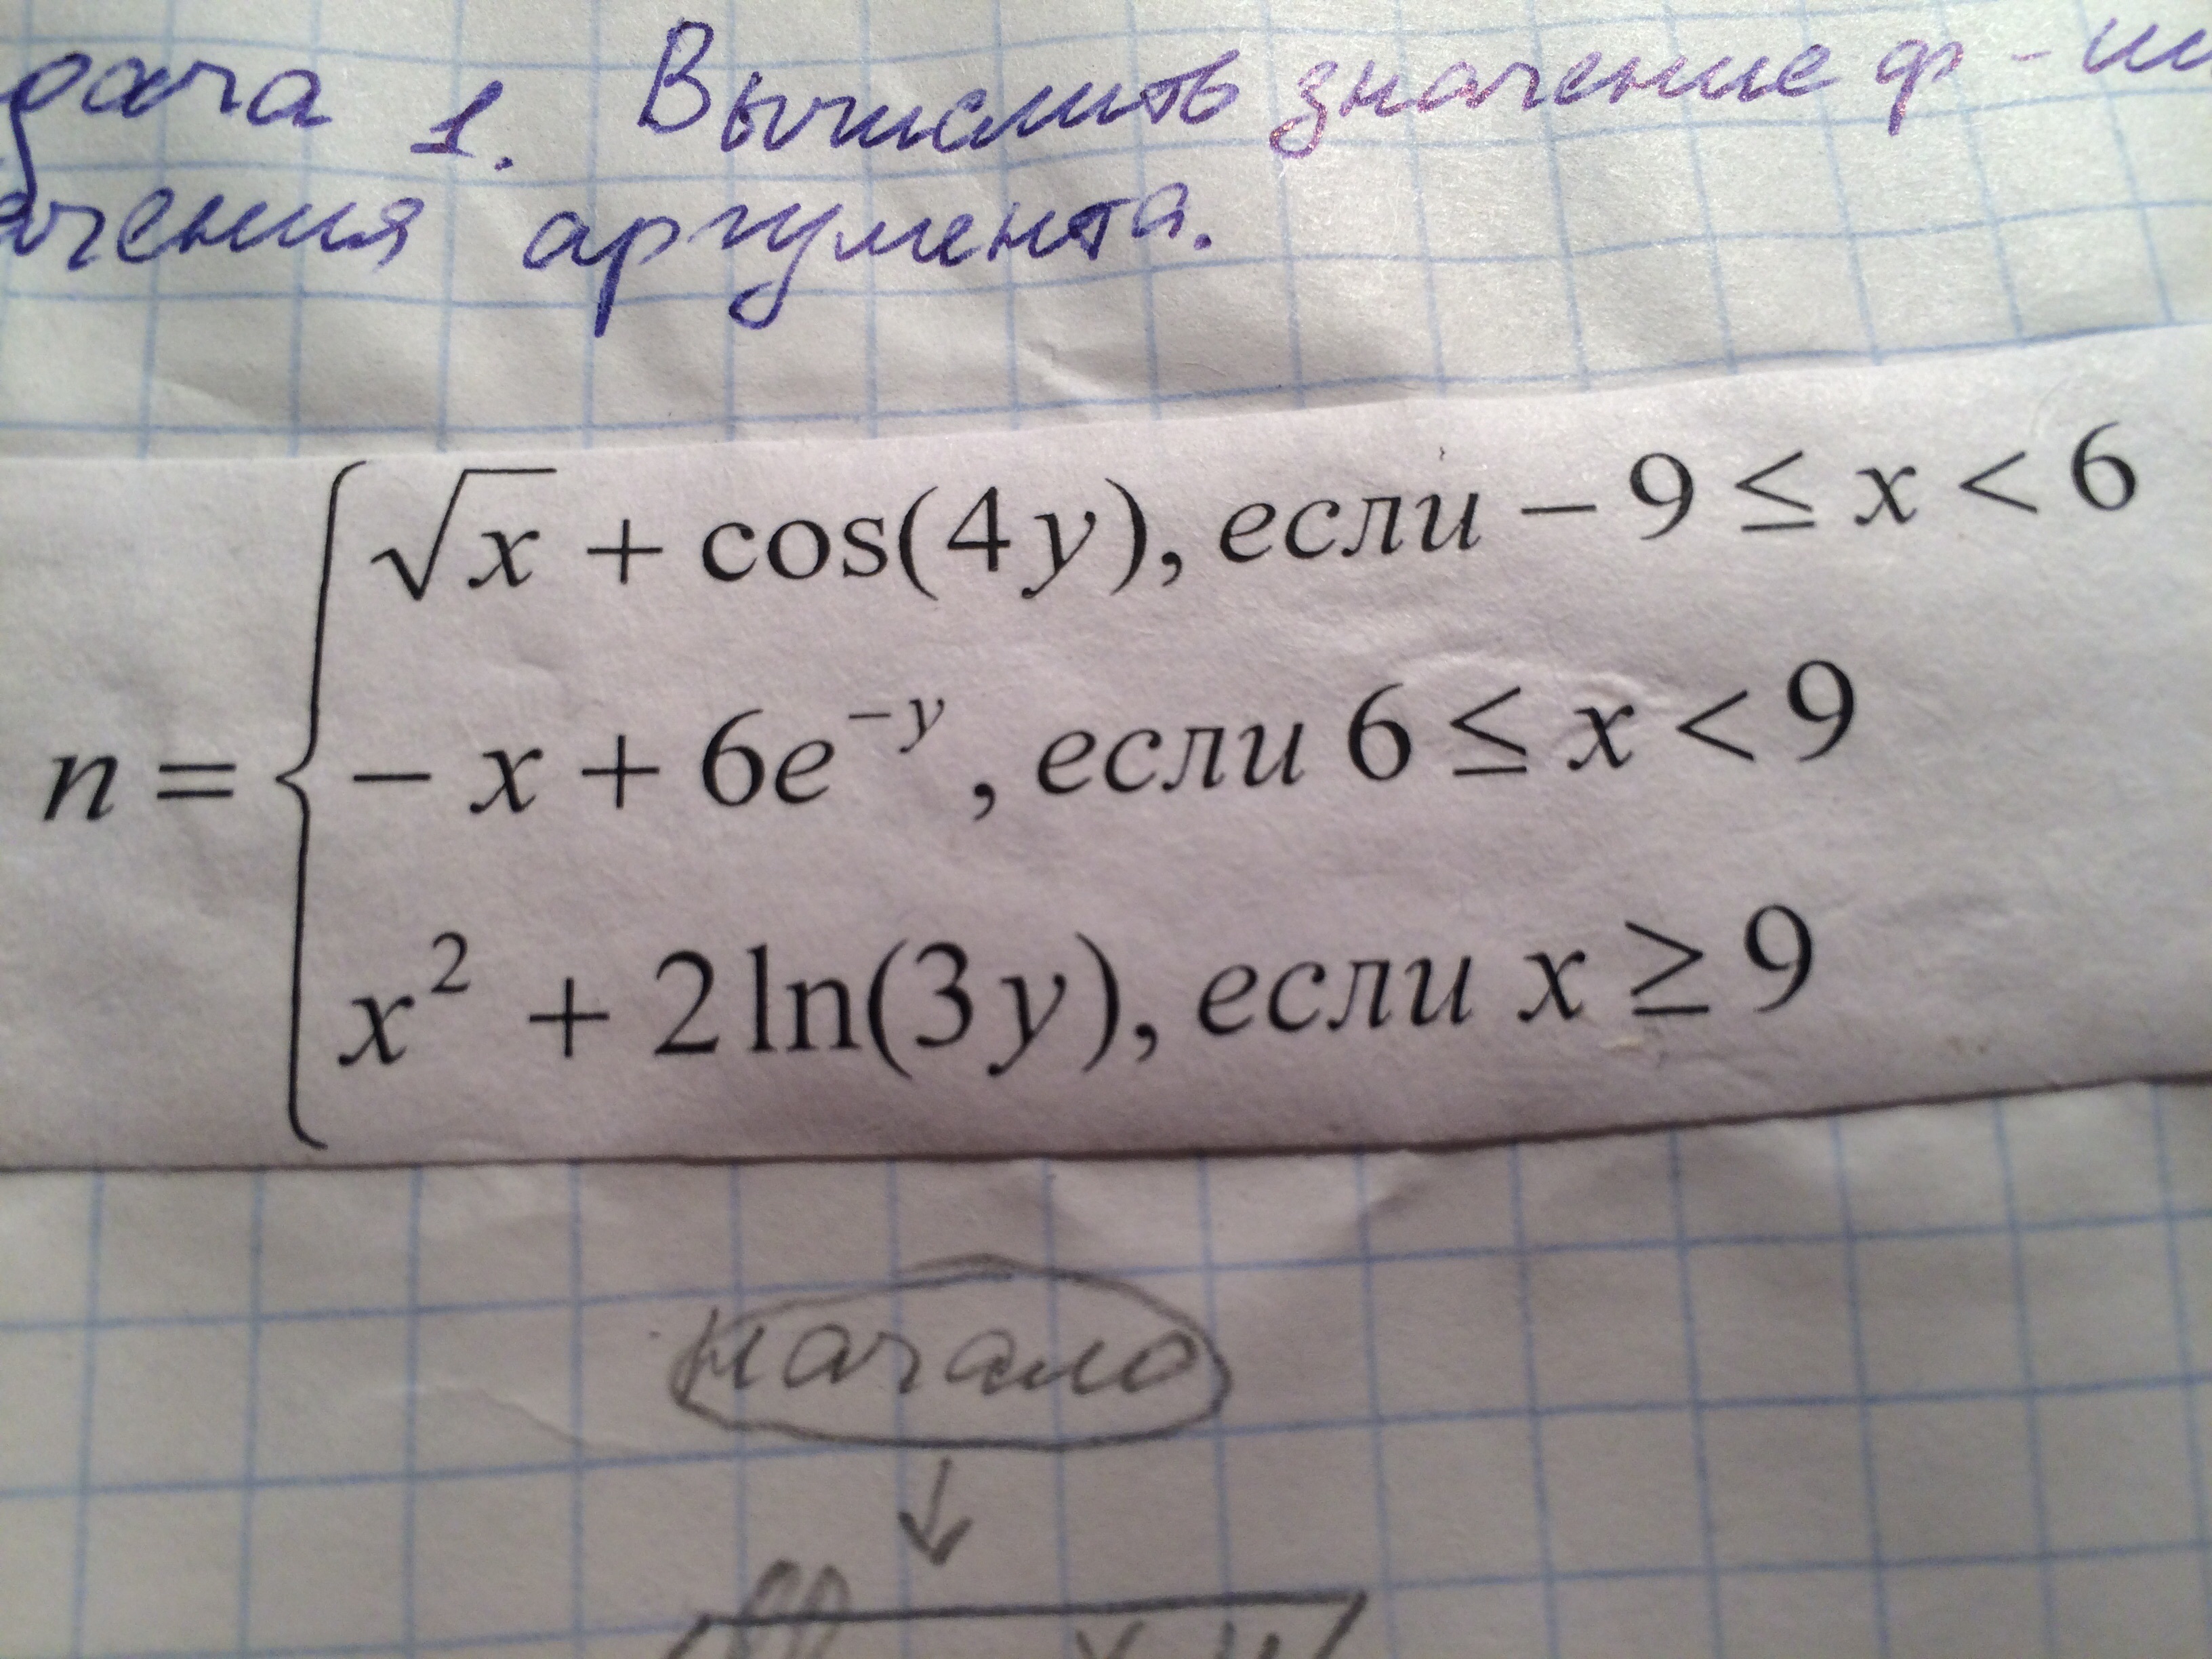 дача 1. Вычислить значение ф-ии
ачения аргумента.
√x + cos(4y), если – 9 ≤ x < 6
n = – x + 6e^{–y}, если 6 ≤ x < 9
x² + 2 ln(3y), если x ≥ 9
начало